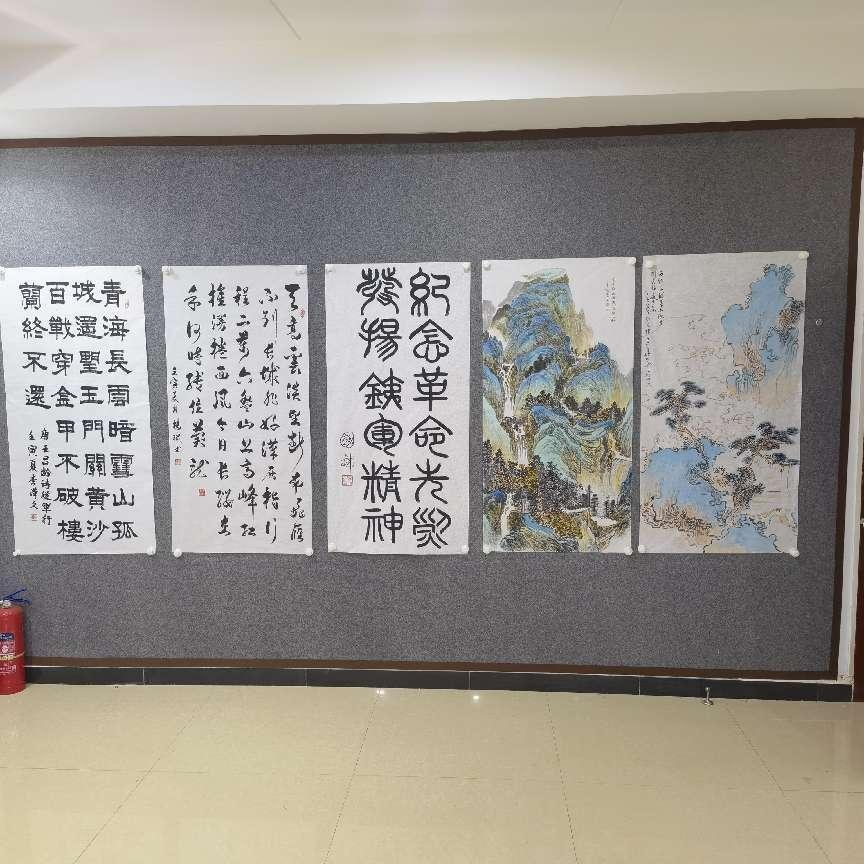 青海長雲暗雪山孤
城遥望玉門關黃沙
百戰穿金甲不破樓
蘭終不還
唐王昌齡詩從軍行
壬寅夏李澤文
天高雲淡望斷南飛雁
不到長城非好漢屈指行
程二萬六盤山上高峰紅
旗漫捲西風今日長纓在
手何時縛住蒼龍
壬寅夏月
紀念革命先烈
發揚鐵軍精神